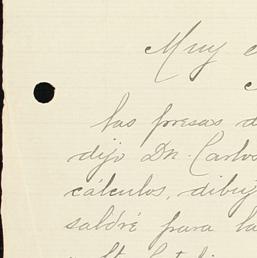 Muy
las presas d
dijo Dn. Carlos
cálculos, dibuj
saldré para la